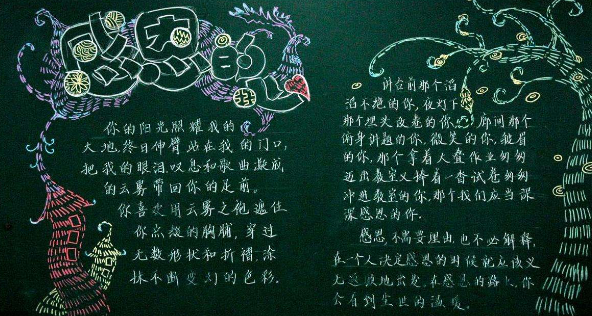 你的阳光照耀我的
大地,终日伸臂站在我的门口,
把我的眼泪、叹息和歌曲凝成
的云雾带回你的足前。
你喜爱用云雾之袍遮住
你点缀的胸脯,穿过
无数形状和折褶,涂
抹不断变幻的色彩.
讲台前那个滔
滔不绝的你,夜灯下
那个埋头改卷的你,廊间那个
俯身讲题的你,微笑的你,皱眉
的你,那个拿着 作业匆匆
出教室又捧着一沓试卷匆匆
冲进教室的你,那个我们应当深
深感恩的你.
感恩,不需要理由,也不必解释,
在一个人决定感恩的时候就应该义
无返顾地出发,在感恩的路上,你
会看到尘世的温暖。